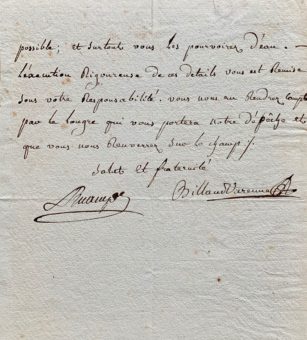 possible; et surtout vous les pourvoirez d'eau. —
L'exécution Rigoureuse de ces details vous est Remise
sous votre Responsabilité. vous nous en Rendrez Compte
par le lougre qui vous portera notre dépêche et
que vous nous Renverrez sur le champ /.
Salut et fraternité
Billaud Varenne